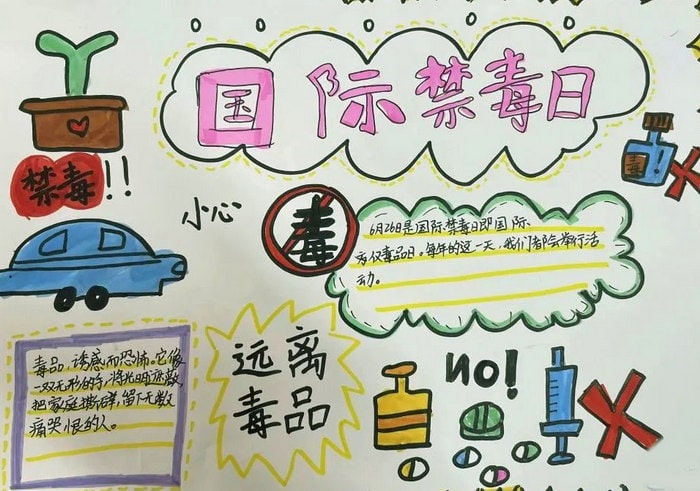 国际禁毒日
禁毒!!
毒
小心
毒
6月26日是国际禁毒日即国际
反仅毒品日,每年的这一天,我们都会举行活
动。
毒品,诱惑而恐怖。它像
一双无形的手,将光明遮蔽,
把家庭撕碎,留下无数
痛哭恨的人。
远离
毒品
NO!